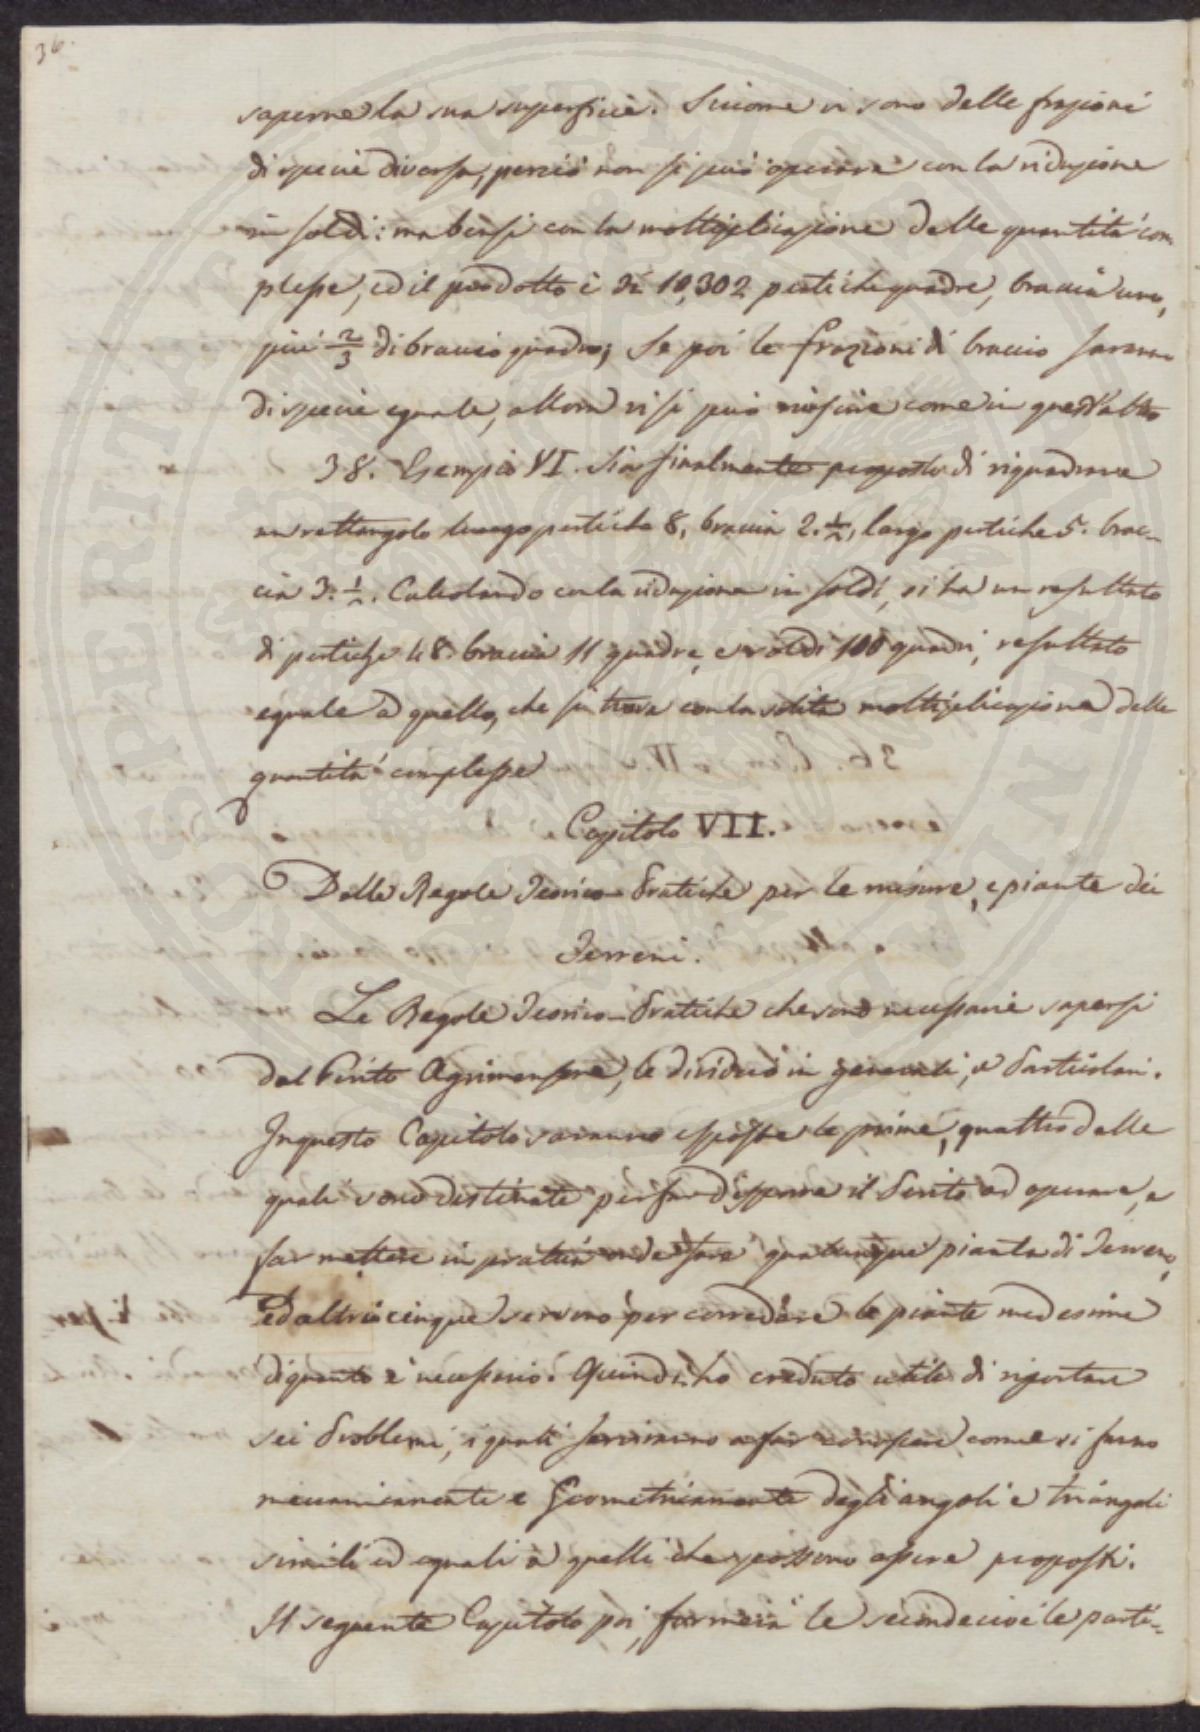 36.
saperne la sua superficie. Siccome vi sono delle frazioni
di specie diversa, perciò non si può operare con la riduzione
in soldi: ma bensì con la moltiplicazione delle quantità com
plesse, ed il prodotto è di 10,302 pertiche quadre, braccia uno,
più 2/3 di braccio quadro; Se poi le frazioni di braccio saranno
di specie eguale, allora vi si può riescire come in quest'altro
38. Esempio VI. Sia finalmente proposto di riquadrare
un rettangolo lungo pertiche 8, braccia 2. 1/2, largo pertiche 5. brac-
cia 3. 1/2. Calcolando con la riduzione in soldi, si ha un resultato
di pertiche 48. braccia 11 quadre, e soldi 100 quadri, resultato
eguale a quello, che si trova con la solita moltiplicazione delle
quantità complesse
Capitolo VII.
Delle Regole Teorico-Pratiche per le misure, e piante dei
Terreni.
Le Regole Teorico-Pratiche che sono necessarie sapersi
dal Perito Agrimensore, le divideró in generali, e Particolari.
In questo Capitolo saranno esposte le prime, quattro delle
quali sono destinate per far disporre il Perito ad operare, e
far mettere in prattica onde fare qualunque pianta di Terreno,
ed altre cinque servono per corredare le piante medesime
di quanto è necessario. Quindi ho creduto utile di riportare
sei Problemi, i quali serviranno a far conoscere come si fanno
meccanicamente e Geometricamente degli angoli e triangoli
simili ed eguali a quelli che possono essere proposti.
Il seguente Capitolo poi, formerà le seconde cioè le parti-